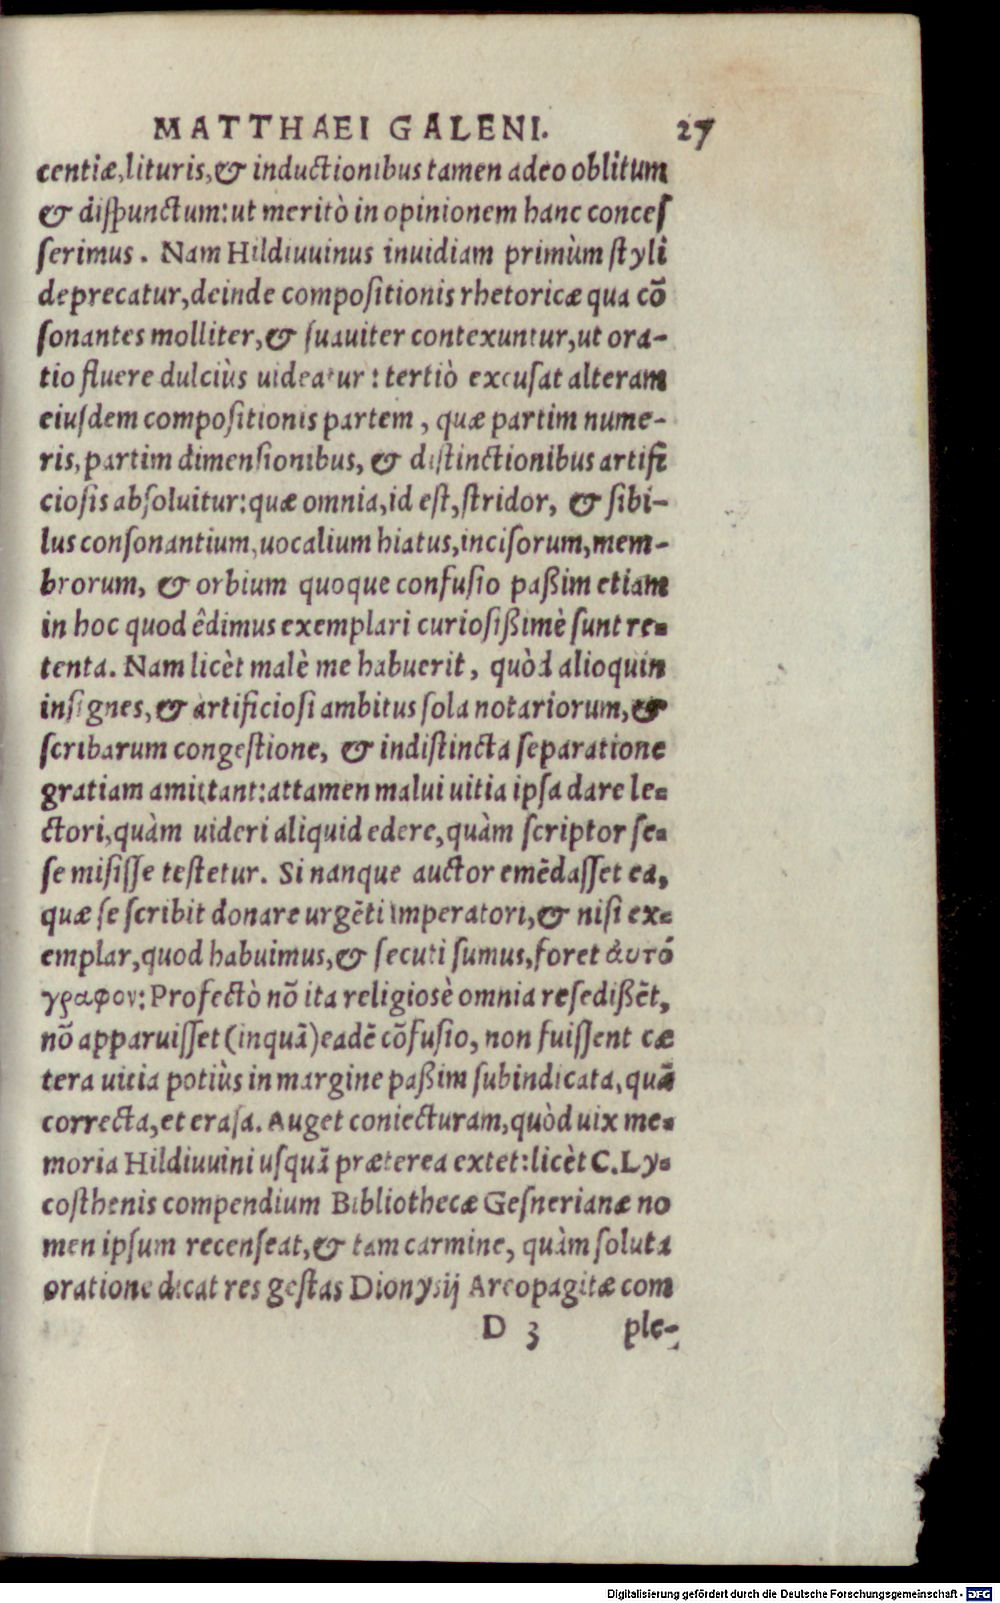 MATTHAEI GALENI. 27
centiæ, lituris, & inductionibus tamen adeo oblitum
& diſpunctum: ut meritò in opinionem hanc conceſ
ſerimus. Nam Hilduuinus inuidiam primùm ſtyli
deprecatur, deinde compoſitionis rhetoricæ qua cõ
ſonantes molliter, & ſuauiter contexuntur, ut ora-
tio fluere dulciùs uideatur: tertiò excuſat alteram
eiuſdem compoſitionis partem, quæ partim nume-
ris, partim dimenſionibus, & diſtinctionibus artifi
cioſis abſoluitur: quæ omnia, id eſt, ſtridor, & ſibi-
lus conſonantium, uocalium hiatus, inciſorum, mem-
brorum, & orbium quoque confuſio paßim etiam
in hoc quod êdimus exemplari curioſißimè ſunt re-
tenta. Nam licèt malè me habuerit, quòd alioquin
inſignes, & artificioſi ambitus ſola notariorum, &
ſcribarum congeſtione, & indiſtincta ſeparatione
gratiam amittant: attamen malui uitia ipſa dare le-
ctori, quàm uideri aliquid edere, quàm ſcriptor ſe-
ſe miſiſſe teſtetur. Si nanque auctor emẽdaſſet ea,
quæ ſe ſcribit donare urgẽti imperatori, & niſi ex-
emplar, quod habuimus, & ſecuti ſumus, foret ἀυτό
γραφον: Profectò nõ ita religiosè omnia reſedißẽt,
nõ apparuiſſet (inquã) eadẽ cõfuſio, non fuiſſent cæ
tera uitia potiùs in margine paßim ſubindicata, quã
correcta, et eraſa. Auget coniecturam, quòd uix me-
moria Hilduuini uſquã præterea extet: licèt C. Ly-
coſthenis compendium Bibliothecæ Geſnerianæ no
men ipſum recenſeat, & tam carmine, quàm ſoluta
oratione dicat res geſtas Dionyſij Areopagitæ com
D 3 ple-
Digitalisierung gefördert durch die Deutsche Forschungsgemeinschaft - DFG